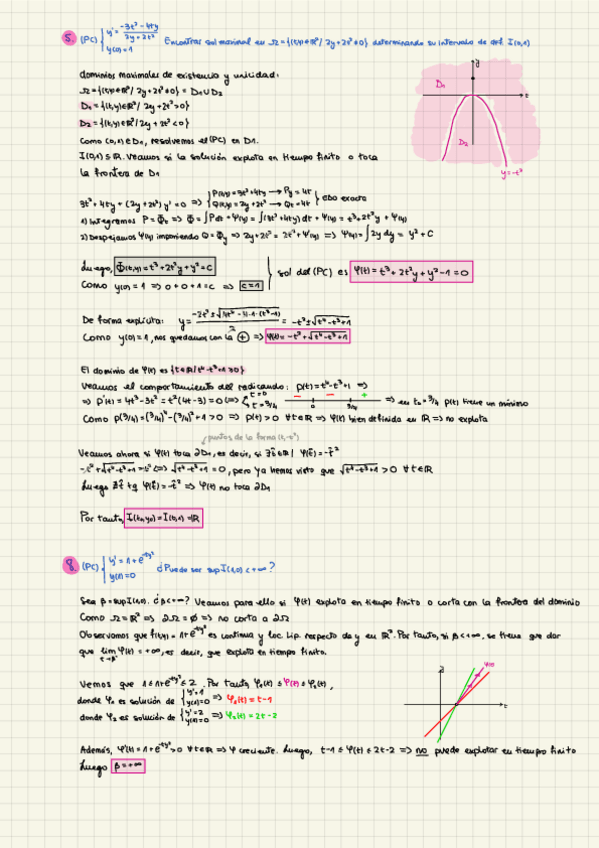 5. (PC) { y' = (-3t² - 4ty)/(2y + 2t²) Encontrar sol maximal en Ω = {(t,y)∈ℝ² / 2y + 2t² ≠ 0} determinando su intervalo de def. I(0,1)
y(0) = 1
dominios maximales de existencia y unicidad:
Ω = {(t,y)∈ℝ² / 2y + 2t² ≠ 0} = D₁ ∪ D₂
D₁ = {(t,y)∈ℝ² / 2y + 2t² > 0}
D₂ = {(t,y)∈ℝ² / 2y + 2t² < 0}
Como (0,1) ∈ D₁, resolvemos el (PC) en D₁.
I(0,1) ⊆ ℝ. Veamos si la solución explota en tiempo finito o toca
la frontera de D₁
y
t
D₁
D₂
y = -t²
3t² + 4ty + (2y + 2t²) y' = 0 => { P(t,y) = 3t² + 4ty → Py = 4t
Q(t,y) = 2y + 2t² → Qt = 4t } edo exacta
1) Integramos P = Φt => Φ = ∫P dt + Ψ(y) = ∫(3t² + 4ty) dt + Ψ(y) = t³ + 2t²y + Ψ(y)
2) Despejamos Ψ(y) imponiendo Q = Φy => 2y + 2t² = 2t² + Ψ'(y) => Ψ(y) = ∫2y dy = y² + C
Luego, Φ(t,y) = t³ + 2t²y + y² = C
Como y(0) = 1 => 0 + 0 + 1 = c => c = 1
} sol del (PC) es φ(t) = t³ + 2t²y + y² - 1 = 0
De forma explícita: y = = -t² ± √(t⁴ - t³ + 1)
Como y(0) = 1, nos quedamos con la (+) => φ(t) = -t² + √(t⁴ - t³ + 1)
El dominio de φ(t) es {t∈ℝ / t⁴ - t³ + 1 ≥ 0}
Veamos el comportamiento del radicando: p(t) = t⁴ - t³ + 1 =>
=> p'(t) = 4t³ - 3t² = t²(4t - 3) = 0 <=> { t = 0, t = 3/4 − 0 − 3/4 + => en t₀ = 3/4 p(t) tiene un mínimo
Como p(3/4) = (3/4)⁴ - (3/4)³ + 1 > 0 => p(t) > 0 ∀t∈ℝ => φ(t) bien definida en ℝ => no explota
puntos de la forma (t, -t²)
Veamos ahora si φ(t) toca ∂D₁, es decir, si ∃t̂∈ℝ / φ(t̂) = -t̂²
-t² + √(t⁴ - t³ + 1) = -t² <=> √(t⁴ - t³ + 1) = 0, pero ya hemos visto que √(t⁴ - t³ + 1) > 0 ∀t∈ℝ
Luego ∄ t̂ tq φ(t̂) = -t̂² => φ(t) no toca ∂D₁
Por tanto, I(t₀,y₀) = I(0,1) = ℝ
8. (PC) { y' = 1 + e^(-ty²) ¿Puede ser sup I(1,0) < +∞?
y(1) = 0
Sea β = sup I(1,0). ¿β < +∞? Veamos para ello si φ(t) explota en tiempo finito o corta con la frontera del dominio
Como Ω = ℝ² => ∂Ω = ∅ => no corta a ∂Ω
Observamos que f(t,y) = 1 + e^(-ty²) es continua y loc. Lip. respecto de y en ℝ². Por tanto, si β < +∞, se tiene que dar
que lim t→β⁻ φ(t) = +∞, es decir, que explota en tiempo finito.
Vemos que 1 ≤ 1 + e^(-ty²) ≤ 2. Por tanto, φ₁(t) ≤ φ(t) ≤ φ₂(t),
donde φ₁ es solución de { y' = 1, y(1) = 0 => φ₁(t) = t - 1
donde φ₂ es solución de { y' = 2, y(1) = 0 => φ₂(t) = 2t - 2
y
φ(t)
t
Además, φ'(t) = 1 + e^(-ty²) > 0 ∀t∈ℝ => φ creciente. Luego, t - 1 ≤ φ(t) ≤ 2t - 2 => no puede explotar en tiempo finito
Luego β = +∞